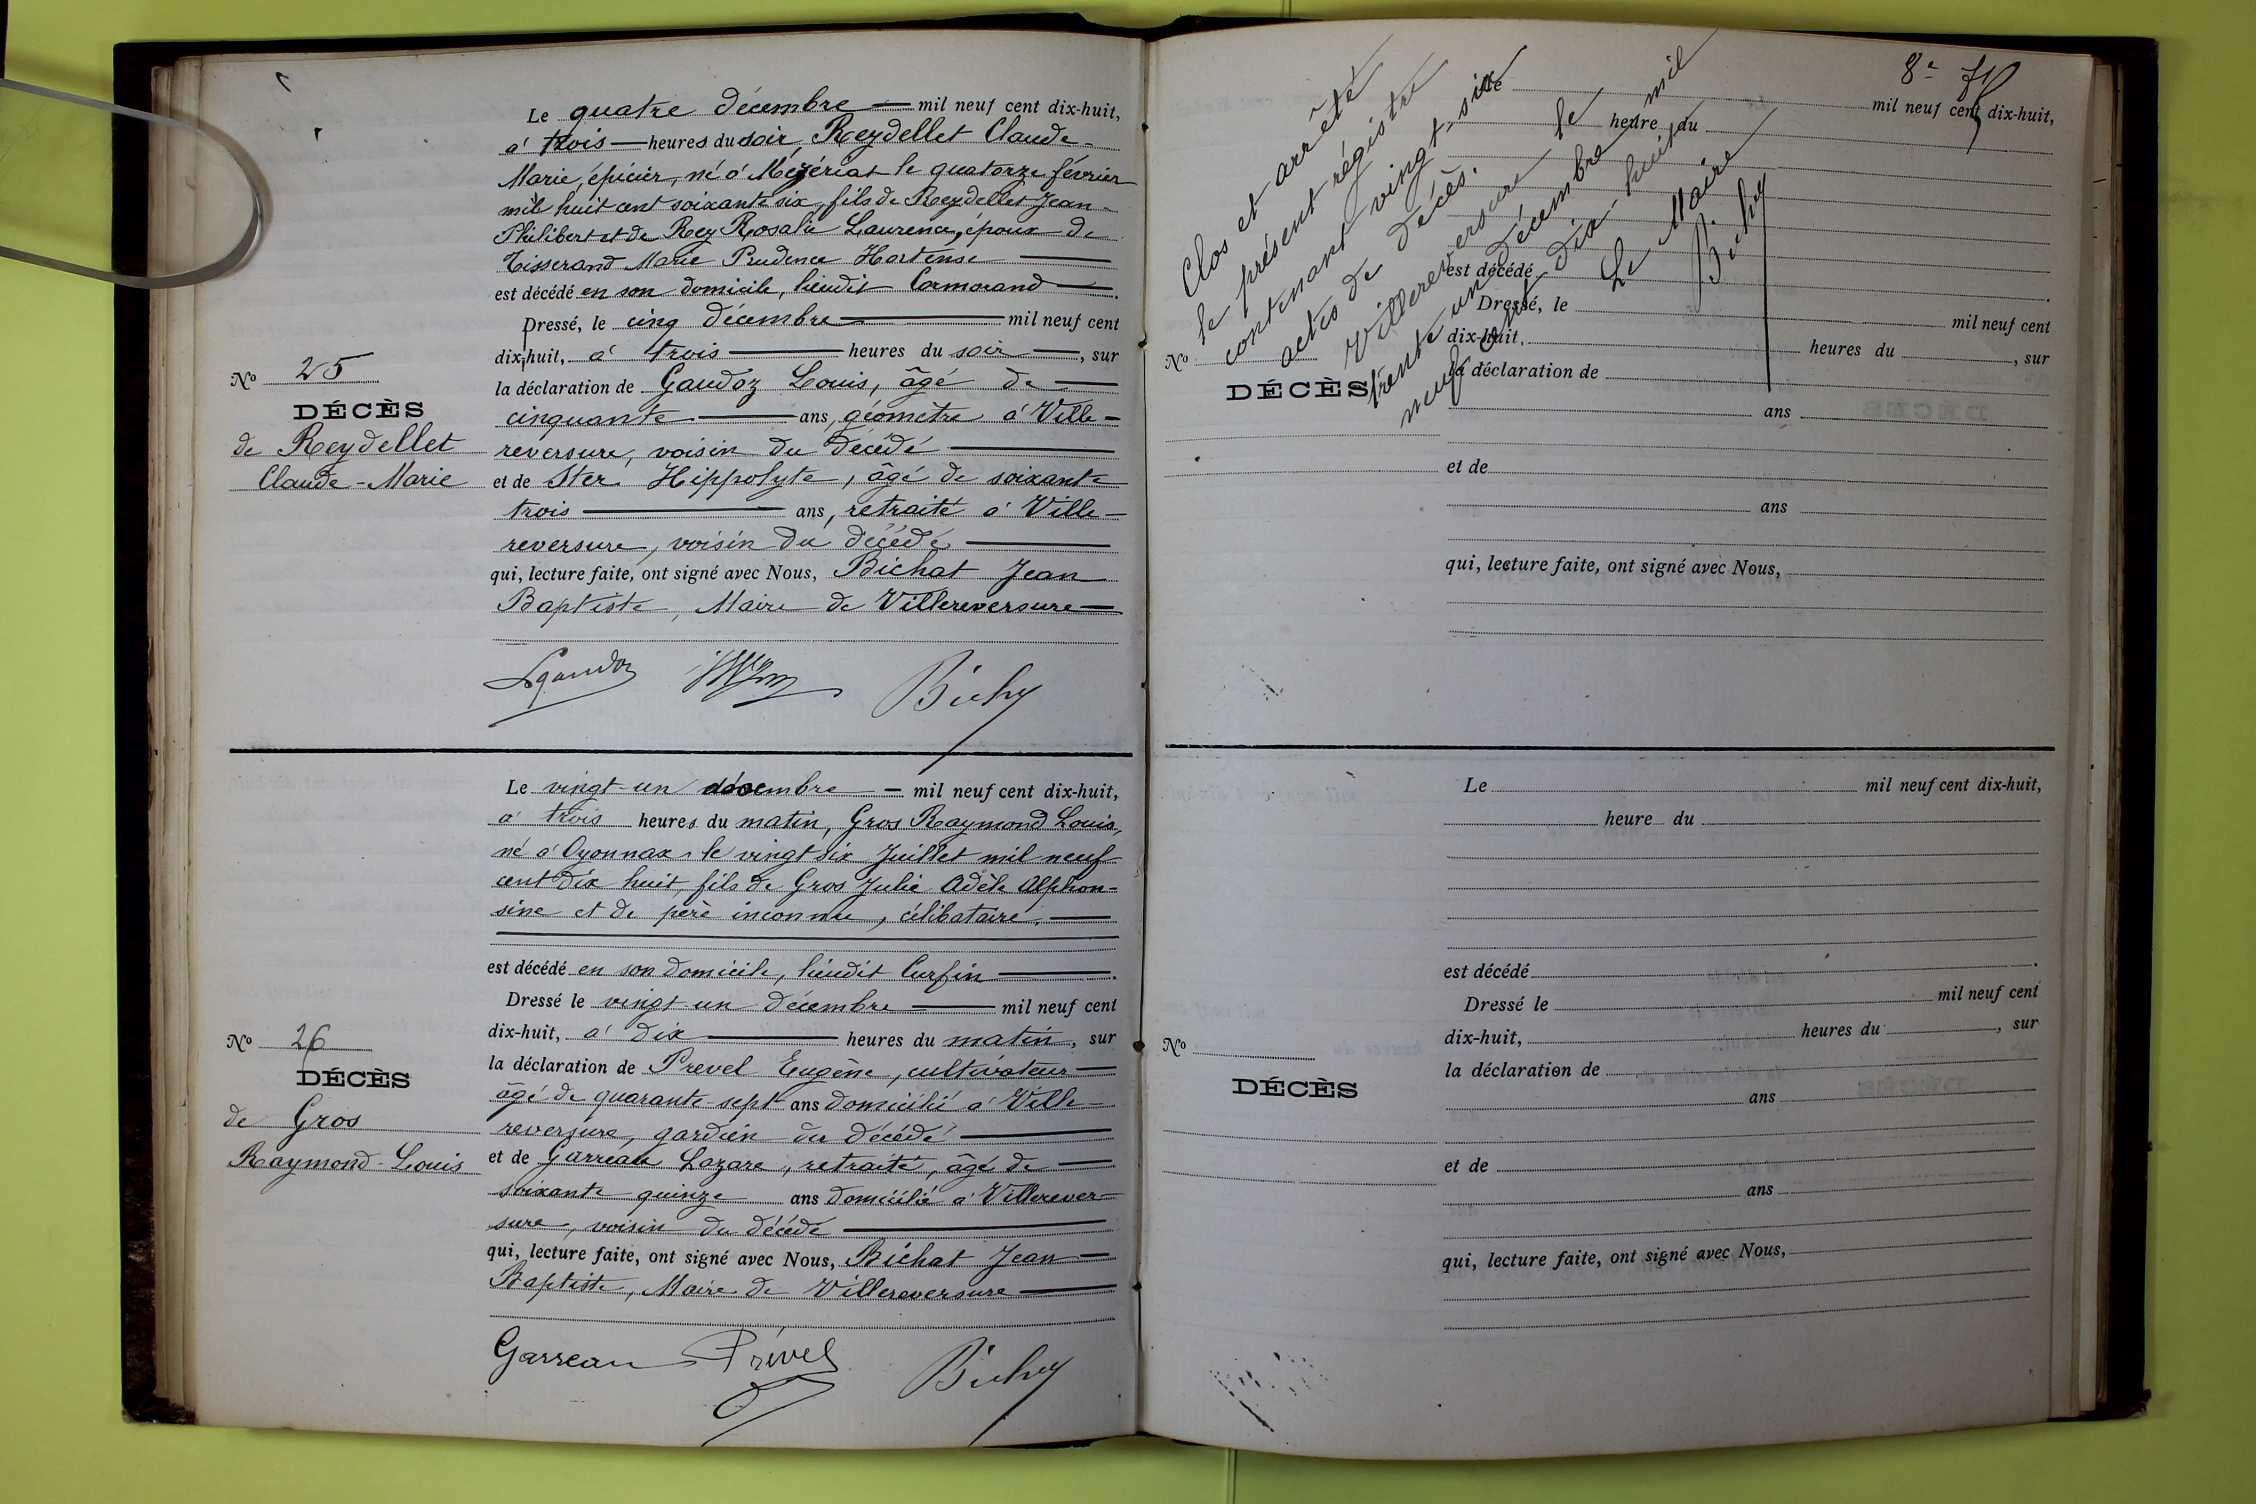 Le quatre décembre — mil neuf cent dix-huit,
à trois — heures du soir, Reydellet Claude-
Marie, épicier, né à Mézériat le quatorze février
mil huit cent soixante six, fils de Reydellet Jean-
Philibert et de Rey Rosalie Laurence, époux de
Tisserand Marie Prudence Hortense —
est décédé en son domicile, lieudit Cormorand —.
Dressé, le cinq décembre — mil neuf cent
dix-huit, à trois — heures du soir —, sur
la déclaration de Gaudoz Louis, âgé de —
cinquante — ans, géomètre à Ville-
reversure, voisin du décédé —
et de Ster Hippolyte, âgé de soixante
trois — ans, retraité à Ville-
reversure, voisin du décédé —
qui, lecture faite, ont signé avec Nous, Bichat Jean
Baptiste, Maire de Villereversure —
No 25
DÉCÈS
de Reydellet
Claude-Marie
LGaudoz
Le vingt-un décembre — mil neuf cent dix-huit,
à trois heures du matin, Gros Raymond Louis,
né à Oyonnax le vingt six Juillet mil neuf
cent dix huit, fils de Gros Julie Adèle Alphon-
sine et de père inconnu, célibataire, —
est décédé en son domicile, lieudit Curfin —.
Dressé le vingt un décembre — mil neuf cent
dix-huit, à dix — heures du matin, sur
la déclaration de Prevel Eugène, cultivateur —
âgé de quarante sept ans domicilié à Ville-
reversure, gardien du décédé —
et de Garreau Lazare, retraité, âgé de —
soixante quinze ans domicilié à Villerever-
sure, voisin du décédé —
qui, lecture faite, ont signé avec Nous, Bichat Jean —
Baptiste, Maire de Villereversure —
No 26
DÉCÈS
de Gros
Raymond-Louis
Garreau Prével
8e
Clos et arrêté
le présent régistre
contenant vingt-six
actes de décès.
Villereversure le
trente un décembre mil
neuf cent dix-huit
Le Maire
Le mil neuf cent dix-huit,
heure du
est décédé .
Dressé, le mil neuf cent
dix-huit, heures du , sur
la déclaration de
ans
et de
ans
qui, lecture faite, ont signé avec Nous,
No
DÉCÈS
Le mil neuf cent dix-huit,
heure du
est décédé .
Dressé le mil neuf cent
dix-huit, heures du , sur
la déclaration de
ans
et de
ans
qui, lecture faite, ont signé avec Nous,
No
DÉCÈS